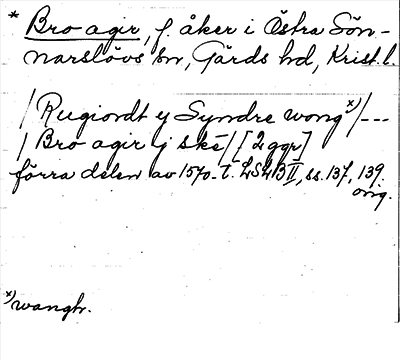 * Bro agir, f. åker i Östra Sön-
narslövs sn, Gärds hd, Krist. l.
/Rugiordt ij Syndre wong x)/---
/Bro agir j ske/ [2 ggr]
förra delen av 1570-t. LSLB II, ss. 137, 139.
orig.
x) wangh.